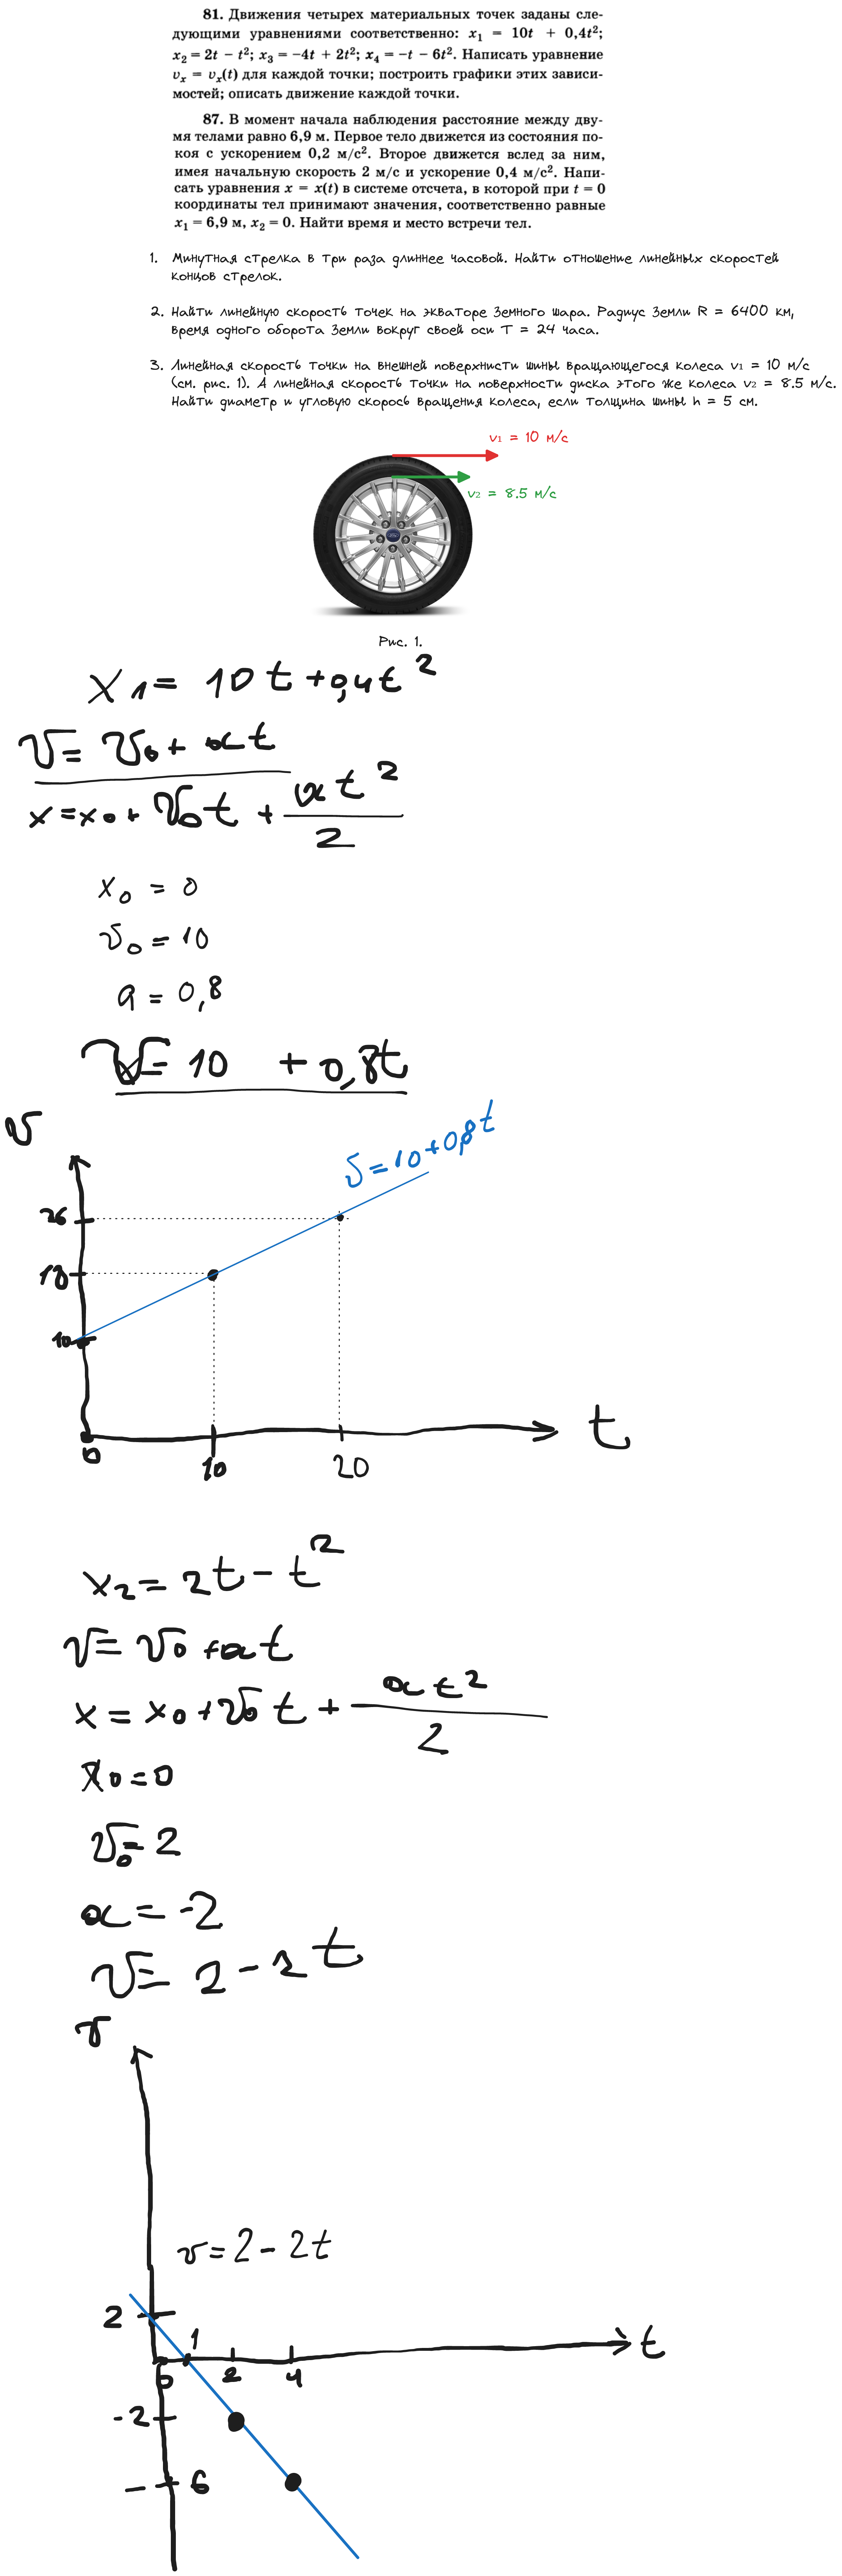 81. Движения четырех материальных точек заданы сле-
дующими уравнениями соответственно: x₁ = 10t + 0,4t²;
x₂ = 2t − t²; x₃ = −4t + 2t²; x₄ = −t − 6t². Написать уравнение
vₓ = vₓ(t) для каждой точки; построить графики этих зависи-
мостей; описать движение каждой точки.
87. В момент начала наблюдения расстояние между дву-
мя телами равно 6,9 м. Первое тело движется из состояния по-
коя с ускорением 0,2 м/с². Второе движется вслед за ним,
имея начальную скорость 2 м/с и ускорение 0,4 м/с². Напи-
сать уравнения x = x(t) в системе отсчета, в которой при t = 0
координаты тел принимают значения, соответственно равные
x₁ = 6,9 м, x₂ = 0. Найти время и место встречи тел.
1. Минутная стрелка в три раза длиннее часовой. Найти отношение линейных скоростей
концов стрелок.
2. Найти линейную скорость точек на экваторе Земного шара. Радиус Земли R = 6400 км,
время одного оборота Земли вокруг своей оси T = 24 часа.
3. Линейная скорость точки на внешней поверхнисти шины вращающегося колеса v₁ = 10 м/с
(см. рис. 1). А линейная скорость точки на поверхности диска этого же колеса v₂ = 8.5 м/с.
Найти диаметр и угловую скорось вращения колеса, если толщина шины h = 5 см.
v₁ = 10 м/с
v₂ = 8.5 м/с
Рис. 1.
x₁ = 10t + 0,4t²
v = v₀ + at
x = x₀ + v₀t + at²/2
x₀ = 0
v₀ = 10
a = 0,8
v = 10 + 0,8t
v
v = 10 + 0,8t
26
18
10
0
10
20
t
x₂ = 2t − t²
v = v₀ + at
x = x₀ + v₀t + at²/2
x₀ = 0
v₀ = 2
a = -2
v = 2 - 2t
v
v = 2 - 2t
2
1
t
0
2
4
-2
-6